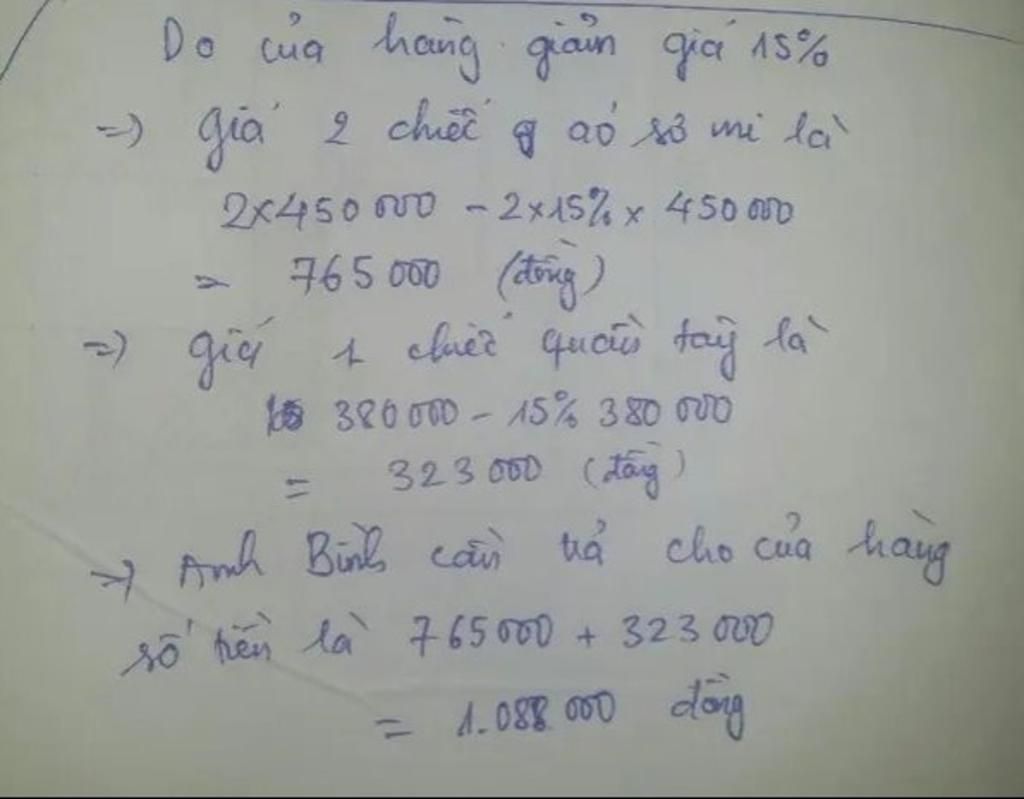 Do của hàng giảm giá 15%
=> Giá 2 chiếc áo sơ mi là
2×450 000 - 2×15% × 450 000
= 765 000 (đồng)
=> Giá 1 chiếc quần tây là
380 000 - 15% 380 000
= 323 000 (đồng)
=> Anh Bình cần trả cho của hàng
số tiền là 765 000 + 323 000
= 1.088 000 đồng